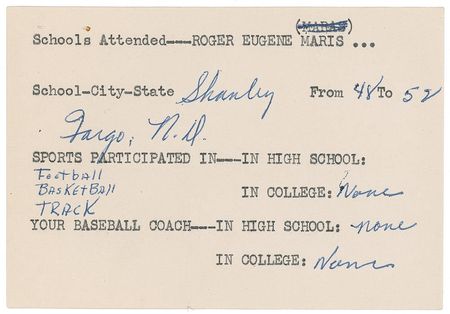 (MARAS)
Schools Attended---ROGER EUGENE MARIS ...
School-City-State Shanley From 48 To 52
Fargo, N.D.
SPORTS PARTICIPATED IN---IN HIGH SCHOOL:
Football
BASKETBALL IN COLLEGE: None
TRACK
YOUR BASEBALL COACH---IN HIGH SCHOOL: none
IN COLLEGE: None